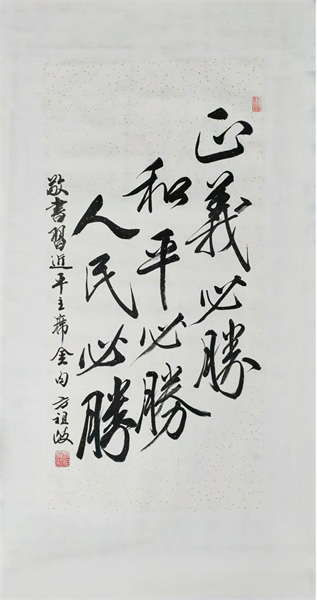 正義必勝
和平必勝
人民必勝
敬書習近平主席金句 方祖岐